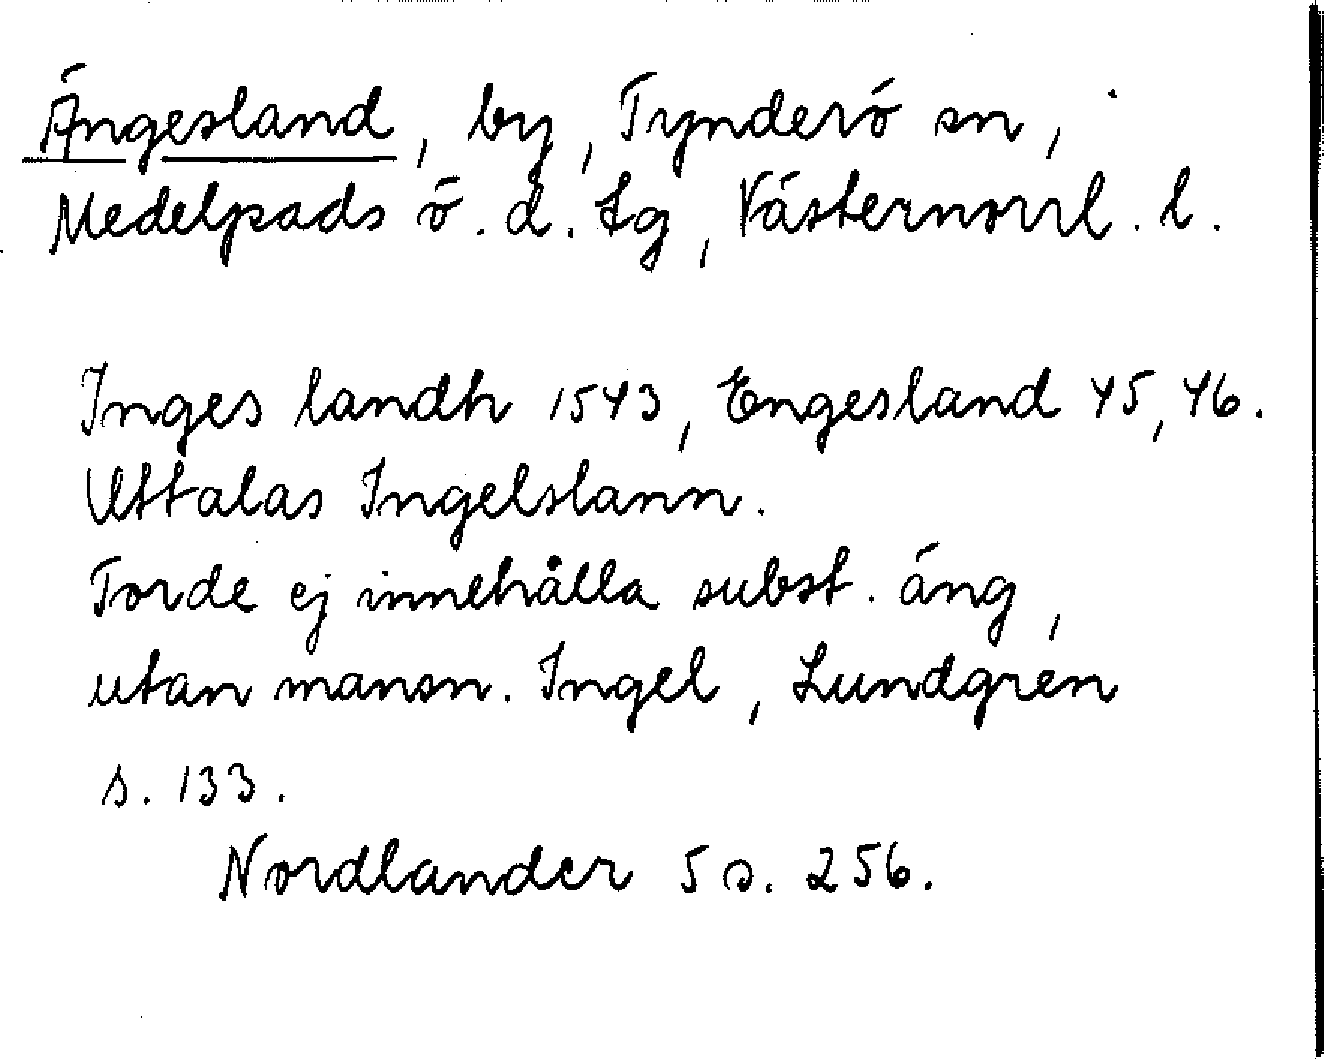 Ängesland, by, Tynderö sn,
Medelpads ö. d. tg, Västernorrl. l.
Inges landh 1543, Engesland 45, 46.
Uttalas Ingelslann.
Torde ej innehålla subst. äng,
utan mansn. Ingel, Lundgren
s. 133.
Nordlander 5 s. 256.